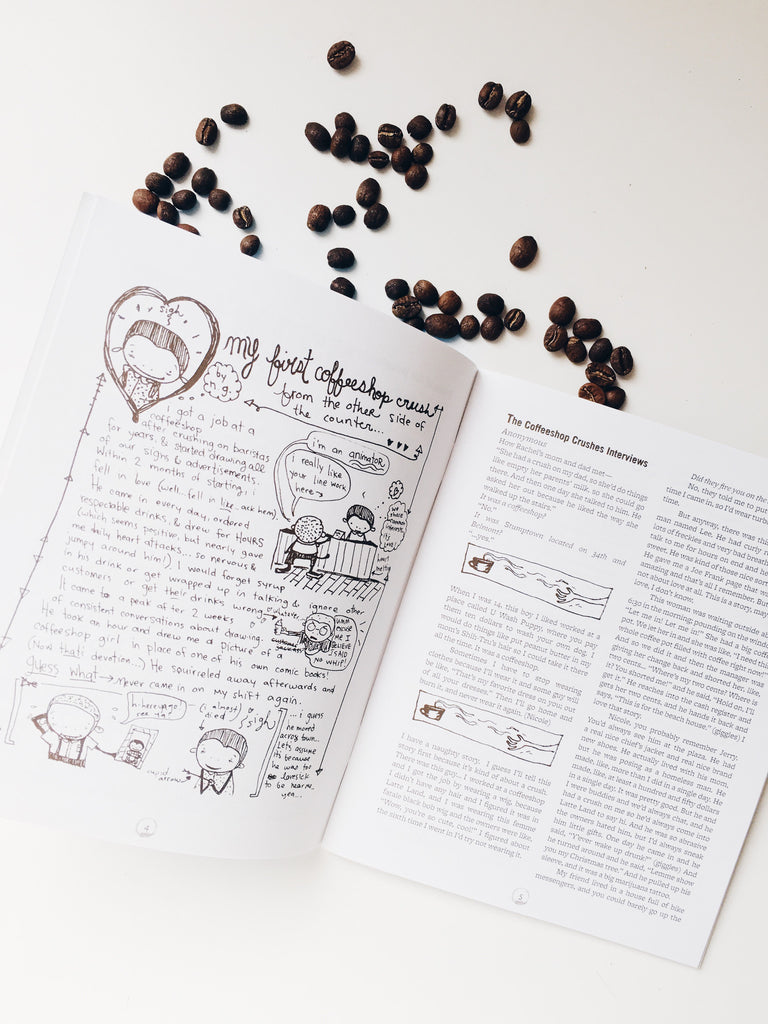 sigh
my first coffeeshop crush
by n.g.
from the other side of
the counter...
I got a job at a
coffeeshop
after crushing on baristas
for years, & started drawing all
of our signs & advertisements.
Within 2 months of starting, i
fell in love (well, fell in like, ack hem)
He came in every day, ordered
respectable drinks, & drew for HOURS
(which seems positive, but nearly gave
me daily heart attacks... so nervous &
jumpy around him!) I would forget syrup
in his drink or get wrapped up in talking & ignore other
customers or get their drinks wrong.
It came to a peak after 2 weeks
of consistent conversations about drawing.
He took an hour and drew me a picture of a
coffeeshop girl in place of one of his own comic books!
(Now that's devotion...) He squirreled away afterwards and
guess what → never came in on my shift again.
i'm an animator
i really like
your line work
here
we
share
common
interests,
its
love!
heart
beating
umm
excuse
me I
believe
I said
NO WHIP!
customer
hi-hereyago
see ya!
(i almost
died)
sigh
cupid
arrow
... i guess
he moved
across town...
Let's assume
its because
he was too
lovesick
to be near me,
yea...
4
The Coffeeshop Crushes Interviews
Anonymous
How Rachel's mom and dad met—
"She had a crush on my dad, so she'd do things
like empty her parents' milk, so she could go
there. And then one day she talked to him. He
asked her out because he liked the way she
walked up the stairs."
It was a coffeeshop?
"No."
I was Stumptown located on 34th and
Belmont?
—yes.
When I was 14, this boy I liked worked at a
place called U Wash Puppy, where you pay
them ten dollars to wash your own dog. I
would do things like put peanut butter in my
mom's Shih Pau's hair so I could take it there
all the time. It was next to a coffeeshop.
Sometimes I have to stop wearing
clothes because I'll wear it and some guy will
be like, "That's my favorite dress on you, out
of all your dresses." Then I'll go home and
burn it, and never wear it again. (Nicole)
I have a naughty story. I guess I'll tell this
story first because it's kind of about a crush.
There was this guy— I worked at a coffeeshop
and I got the job by wearing a wig, because
I didn't have any hair and I figured it was in
Latte Land, and I was wearing this femme
fatale black bob wig and the owners were like,
"Wow, you're so cute, cool!" I figured about
the sixth time I went in I'd try not wearing it.
Did they fire you on the
No, they told me to put
time I came in, so I'd wear turb
time.
But anyway, there was this
man named Lee. He had curly r
lots of freckles and very bad breath
talk to me for hours on end and he
sweet. He was kind of those nice sort
He gave me a Joe Frank tape that w
amazing and that's all I remember. But
not about love at all. This is a story, may
love, I don't know.
This woman was waiting outside ab
6:30 in the morning, pounding on the wind
"Let me in! Let me in!" She had a big coff
pot. We let her in and she was like, "I need this
whole coffee pot filled with coffee right now!"
And so we did and then the manager was
giving her change back and shorted her, like,
two cents... "Where's my two cents? Where is
it? You shorted me," and he said, "Hold on, I'll
get it." He reaches into the cash register and
gets her two cents, and he hands it back and
says, "This is for the beach house." (giggles) I
love that story.
Nicole, you probably remember Jerry.
You'd always see him at the plaza. He had
a real nice chef's jacket and real nice brand
new shoes. He actually lived with his mom,
but he was posing as a homeless man. He
made, like, more than I did in a single day. He
made, like, at least a hundred and fifty dollars
in a single day. It was pretty good. But he and
I were buddies and we'd always chat, and he
had a crush on me so he'd always come into
Latte Land to say hi. And he was so abrasive
the owners hated him, but I'd always sneak
him little gifts. One day he came in and he
said, "Y'ever wake up drunk?" (giggles) And
he turned around and he said, "Lemme show
you my Christmas tree." And he pulled up his
sleeve, and it was a big marijuana tattoo.
My friend lived in a house full of bike
messengers, and you could barely go up the
5